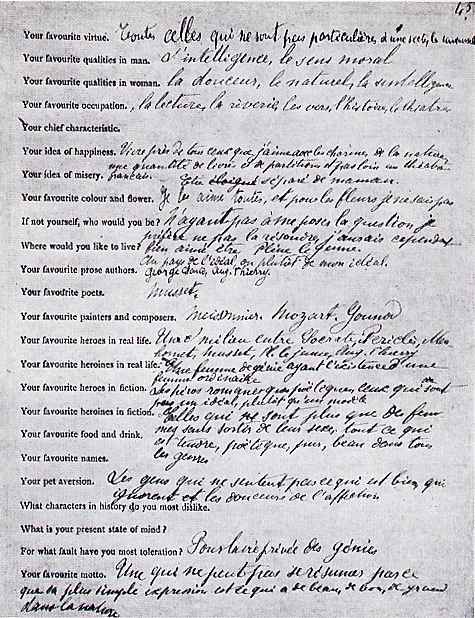 43
Your favourite virtue. Toutes celles qui ne sont pas particulières à une secte, les universelles
Your favourite qualities in man. L'intelligence, le sens moral
Your favourite qualities in woman. la douceur, le naturel, l'intelligence
Your favourite occupation. la lecture, la rêverie, les vers, l'histoire, le théâtre
Your chief characteristic.
Your idea of happiness. Vivre près de tous ceux que j'aime avec les charmes de la nature
une quantité de livres et de partitions, et pas loin un théâtre
français.
Your idea of misery. Être éloigné séparé de maman.
Your favourite colour and flower. Je les aime toutes, et pour les fleurs je ne sais pas
If not yourself, who would you be? N'ayant pas à me poser la question je
préfère ne pas la résoudre, j'aurais cependant
Where would you like to live? bien aimé être Pline le Jeune.
Au pays de l'idéal, ou plutôt de mon idéal.
Your favourite prose authors. George Sand, Aug. Thierry.
Your favourite poets. Musset.
Your favourite painters and composers. Meissonnier, Mozart, Gounod
Your favourite heroes in real life. Un milieu entre Socrate, Périclès, Ma
homet, Musset, Pline le Jeune, Aug. Thierry
Your favourite heroines in real life. Une femme de génie ayant l'existence d'une
femme ordinaire
Your favourite heroes in fiction. Les héros romanesques poétiques, ceux qui sont
un idéal plutôt qu'un modèle
Your favourite heroines in fiction. Celles qui ne sont plus que des fem
mes sans sortir de leur sexe, tout ce qui
Your favourite food and drink. est tendre, poétique, pur, beau dans tous
les genres
Your favourite names.
Your pet aversion. Les gens qui ne sentent pas ce qui est bien, qui
ignorent les douceurs de l'affection
What characters in history do you most dislike.
What is your present state of mind?
For what fault have you most toleration? Pour la vie privée des génies
Your favourite motto. Une qui ne peut pas se résumer parce
que sa plus simple expression est ce qui a de beau, de bon, de grand
dans la nature